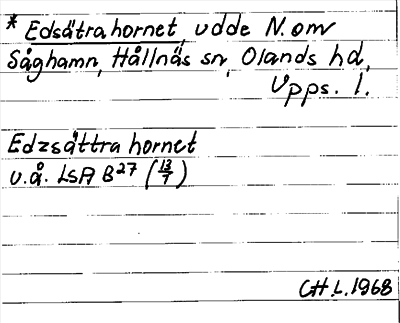 * Edsätrahornet, udde N. om
Såghamn, Hållnäs sn, Olands hd,
Upps. l.
Edzsättra hornet
u.å. LSA B27 (13/7)
CH.L.1968